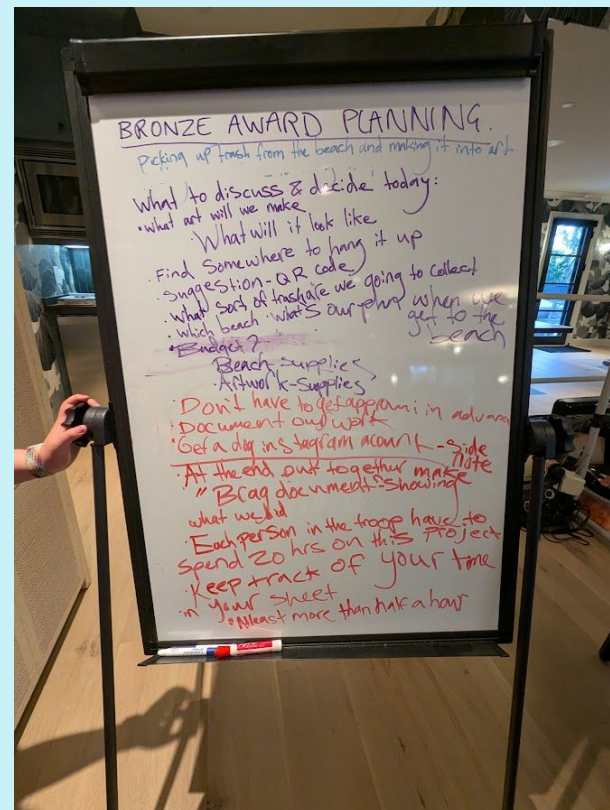 BRONZE AWARD PLANNING.
Picking up trash from the beach and making it into art
What to discuss & decide today:
• what art will we make
• What will it look like
• Find Somewhere to hang it up
• Suggestion - QR code
• what sort of trash are we going to collect
• which beach • what's our plan when we
get to the
beach
• Budget?
Beach-supplies
• Artwork-Supplies
• Don't have to get approml in advance
• Document our work
• Get a dog instagram acount - Side
note
• At the end put together make
" Brag document" showing
what we did
• Each person in the troop have to
spend 20 hrs on this project
• Keep track of your time
in your sheet
• Atleast more than half a hour